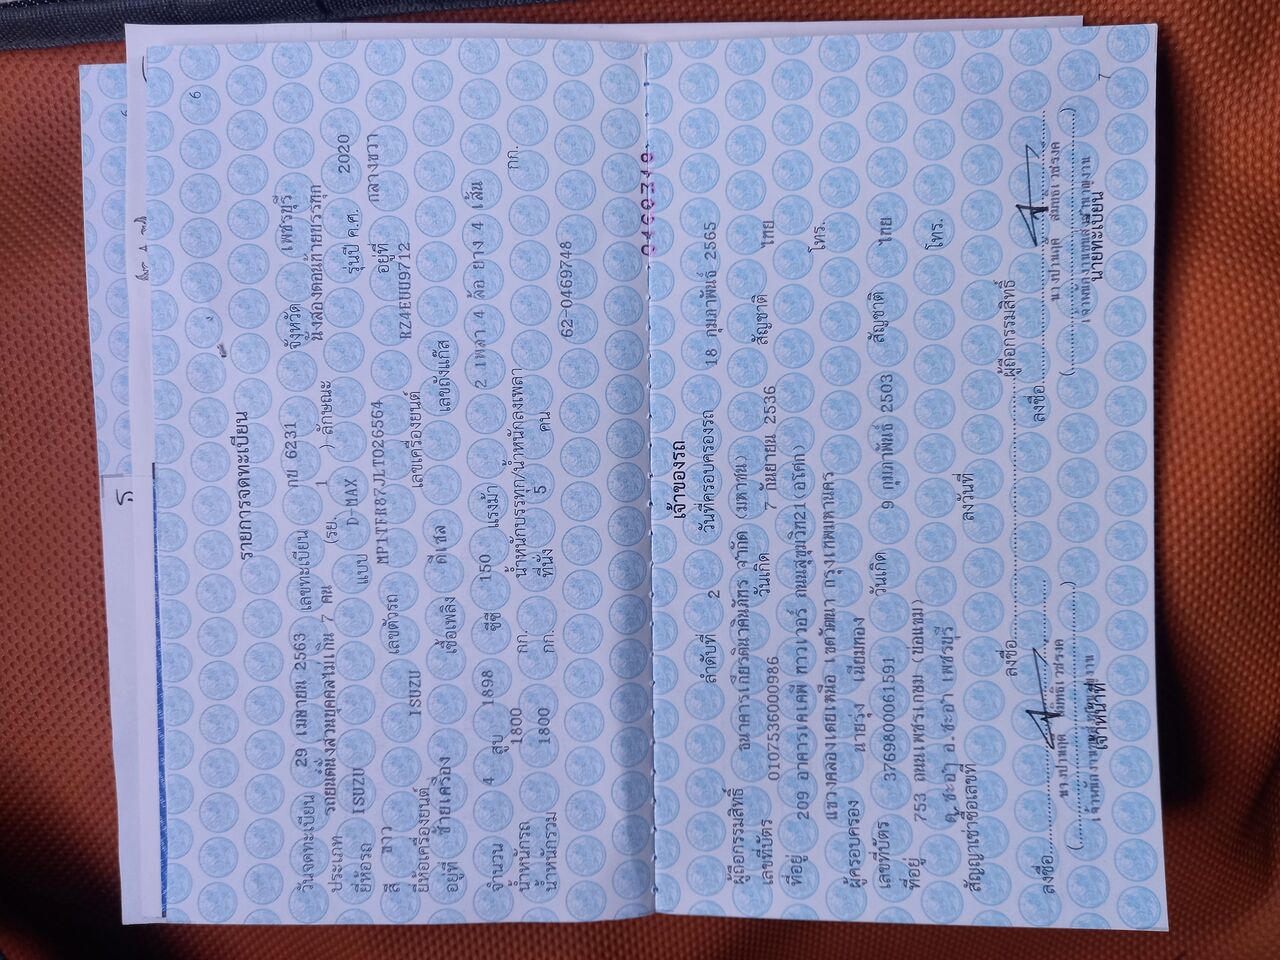 6
รายการจดทะเบียน
วันจดทะเบียน 29 เมษายน 2563 เลขทะเบียน กข 6231 จังหวัด เพชรบุรี
ประเภท รถยนต์นั่งส่วนบุคคลไม่เกิน 7 คน (รย. 1 ) ลักษณะ นั่งสองตอนท้ายบรรทุก
ยี่ห้อรถ ISUZU แบบ D-MAX รุ่นปี ค.ศ. 2020
สี ขาว เลขตัวรถ MP1TFR87JLT026564 อยู่ที่ กลางขวา
ยี่ห้อเครื่องยนต์ ISUZU เลขเครื่องยนต์ RZ4EUU9712
อยู่ที่ ซ้ายเครื่อง เชื้อเพลิง ดีเซล เลขถังแก๊ส
จำนวน 4 สูบ 1898 ซีซี 150 แรงม้า 2 เพลา 4 ล้อ ยาง 4 เส้น
น้ำหนักรถ 1800 กก. น้ำหนักบรรทุก/น้ำหนักลงเพลา กก.
น้ำหนักรวม 1800 กก. ที่นั่ง 5 คน
62-0469748
เจ้าของรถ
ลำดับที่ 2 วันที่ครอบครองรถ 18 กุมภาพันธ์ 2565
ผู้ถือกรรมสิทธิ์ ธนาคารเกียรตินาคินภัทร จำกัด (มหาชน)
เลขที่บัตร 0107536000986 วันเกิด 7 กันยายน 2536 สัญชาติ ไทย
ที่อยู่ 209 อาคารเคเคพี ทาวเวอร์ ถนนสุขุมวิท21(อโศก)
แขวงคลองเตยเหนือ เขตวัฒนา กรุงเทพมหานคร โทร.
ผู้ครอบครอง นายรุ่ง เนียมทอง
เลขที่บัตร 3769800061591 วันเกิด 9 กุมภาพันธ์ 2503 สัญชาติ ไทย
ที่อยู่ 753 ถนนเพชรเกษม (บ่อแขม)
ต.ชะอำ อ.ชะอำ เพชรบุรี โทร.
สัญญาเช่าซื้อเลขที่ ลงวันที่
ลงชื่อ ผู้ถือกรรมสิทธิ์
ลงชื่อ ลงชื่อ
เจ้าหน้าที่ นายทะเบียน
7